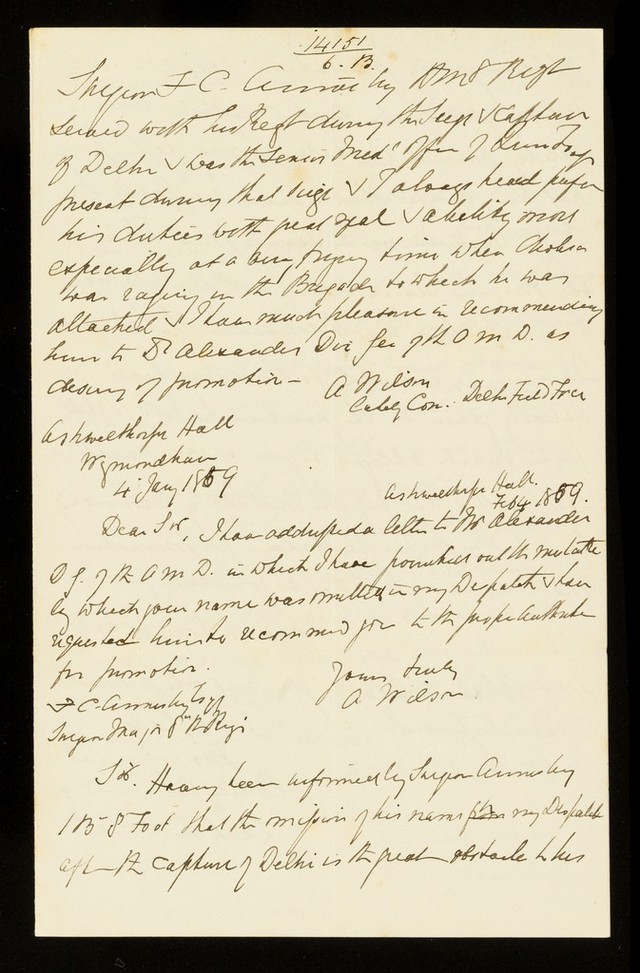 14151
6. B.
Surgeon F C Annesley HM 8 Regt
served with his Regt during the Siege & Capture
of Delhi & was the Senior Medl Offr of
present during that siege & I always heard
his duties with great zeal & ability most
especially at a very trying time when Cholera
was raging in the Brigade to which he was
attached & I have much pleasure in recommending
him to Dr Alexander Dir Gen of th A M D. as
deserving of promotion —
A Wilson
Comg Delhi Field Force
Ashwelthorpe Hall
Wymondham
4 Jany 1859
Ashwelthorpe Hall.
Feb 4 1859.
Dear Sir, I have addressed a letter to Dr Alexander
D G. of th A M D. in which I have pointed out th mistake
by which your name was omitted in my Despatch & have
requested him to recommend you to th proper authorities
for promotion.
Yours truly
A Wilson
F C Annesley Esqr
Surgeon Major 8th Regt
Sir. Having been informed by Surgeon Annesley
8 Foot that the omission of his name from my Despatch
after th capture of Delhi is th great obstacle to his